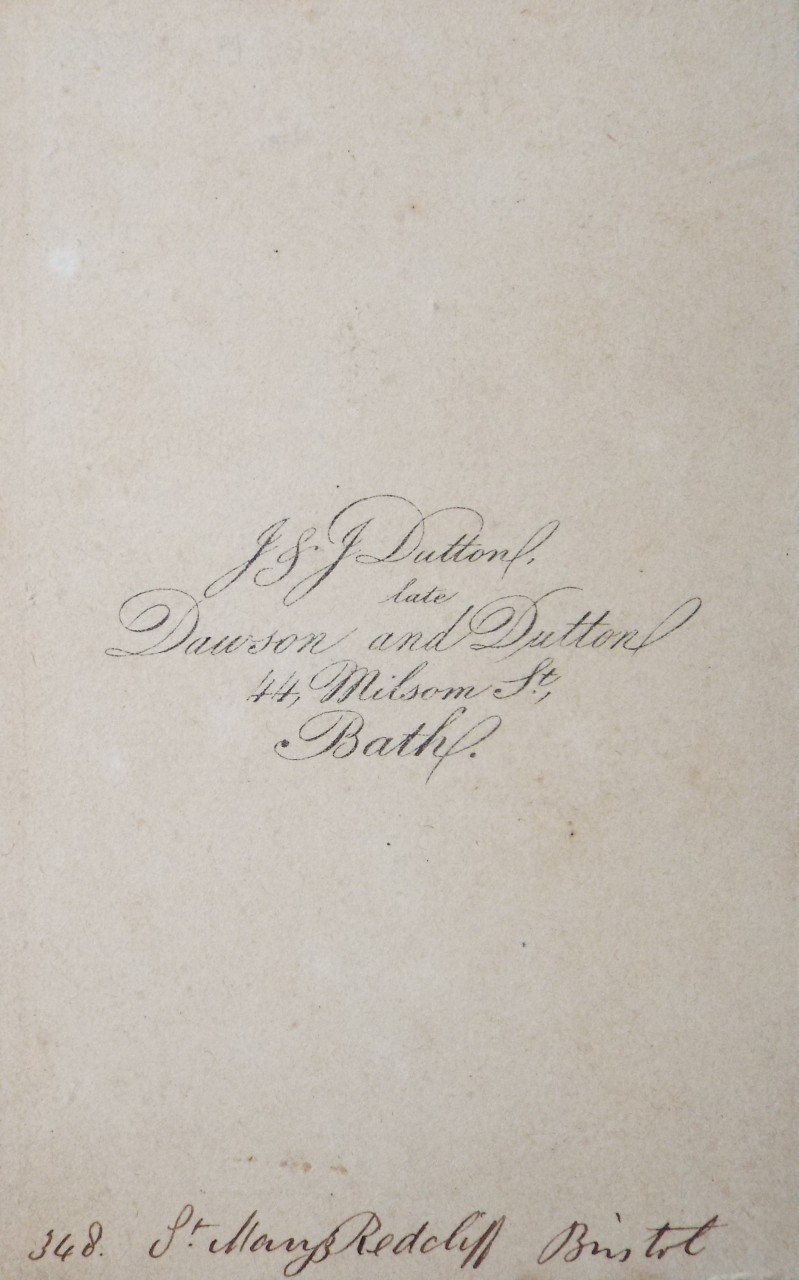 J & J Dutton,
late
Dawson and Dutton
44, Milsom St,
Bath.
348. St Marys Redcliff Bristol